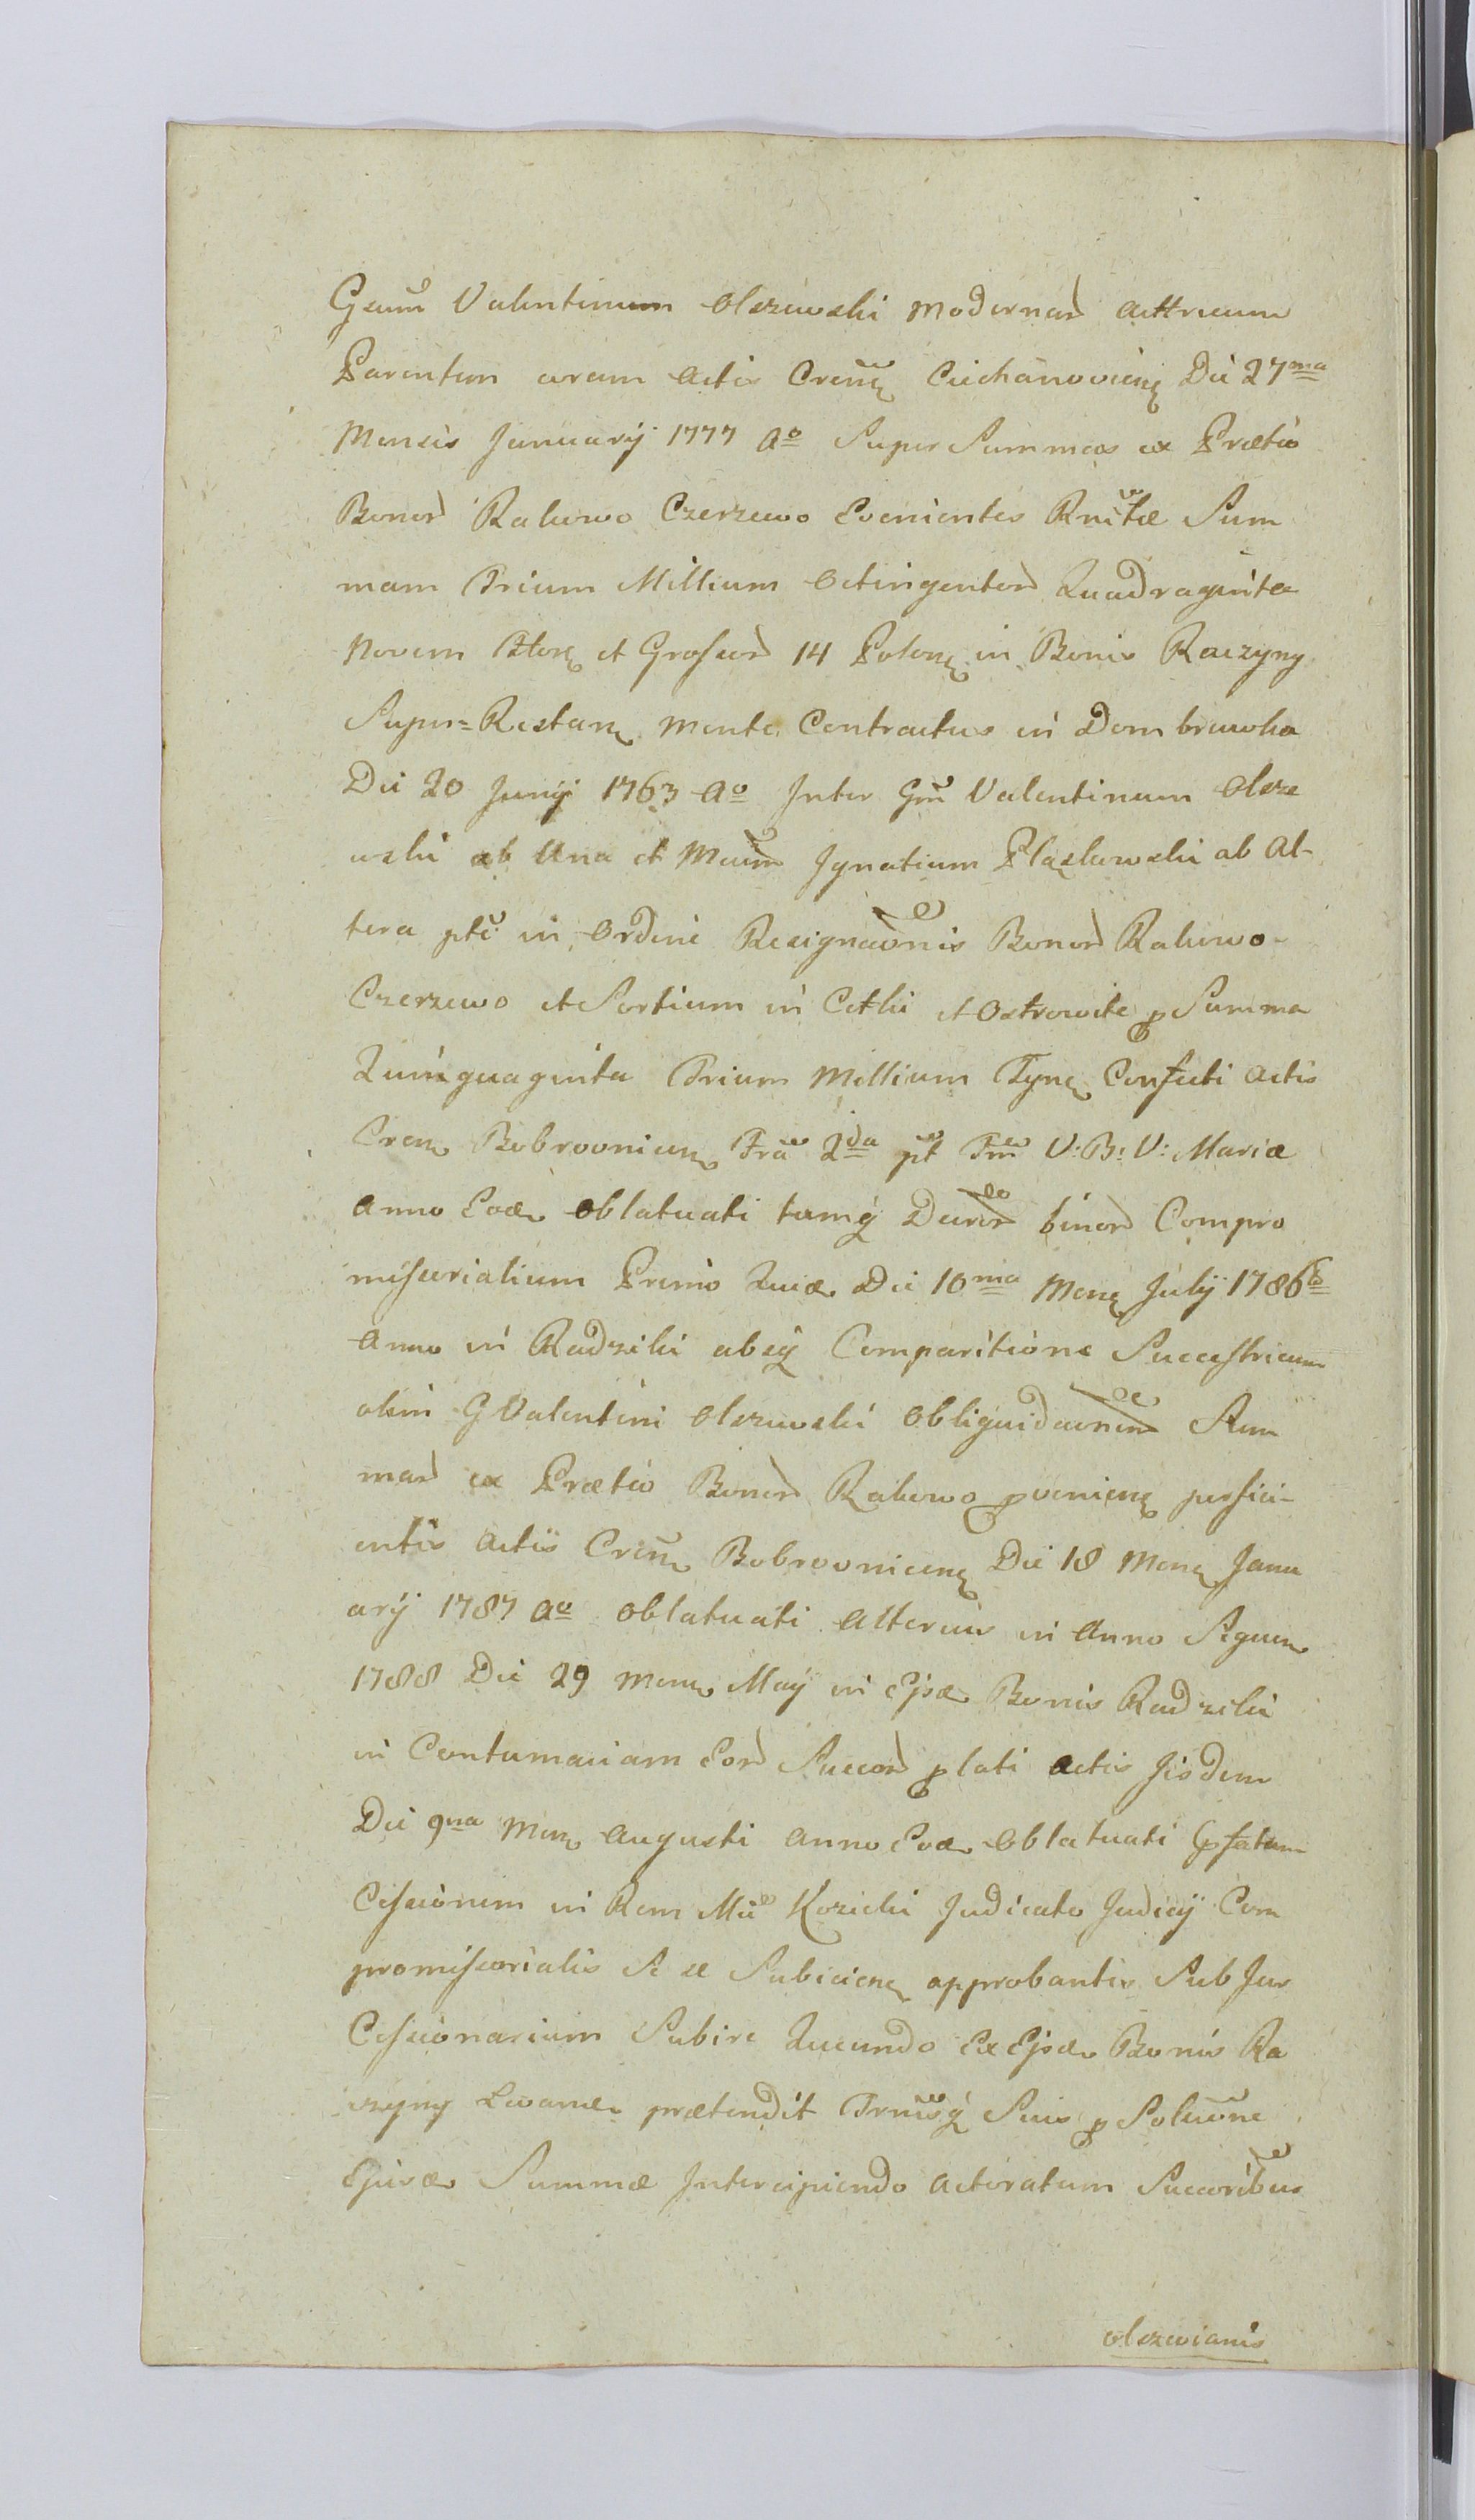 Gsum Valentinum Olszewski modernar Actricum
Parentem coram Actis Cren Ciechanoviens Die 27ma
Mensis January 1777 Ao Super Summas ex Prætio
Bonor Rakowo Czerzewo Evenientes Rnitæ Sum
mam Trium Millium Octingentor Quadraginta
Novem Flor et Grossor 14 Polon in Bonis Raczyny
Super=Restan mente Contractus in Dombrowka
Die 20 Juny 1763 Ao Inter Gm Valentinum Olsze
wski ab Una et Mcum Ignatium Pląskowski ab Al-
tera pte in Ordine Resignaonis Bonor Rakowo-
Czerzewo et Sortium in Cetki et Ostrowite p Summa
Quinquaginta Trium Millium Tync Confecti Actis
Cren Bobrovnicen Fra 2da pt Fm V: B: V: Mariæ
Anno Eod Oblatuati tamq Decror binor Compro
missorialium Primo Quid Die 10ma Mens July 1786to
Anno in Radziki absq Comparitione Succestricum
olim G Valentini Olszewski Obliquidaonem Sum
mar ex Prætio Bonor Rakowo pveniens perfici-
entis Actis Cren Bobrovnicens Die 18 Mens Janu
ary 1787 Ao Oblatuati Alterius in Anno Sequen
1788 Die 29 Mens May in Ejsd Bonis Radziki
in Contumaciam Eor Succor plati Actis Iisdem
Die 9na Mens Augusti Anno Eod Oblatuati Psatam
Cessionem in Rem Mci Kozicki Judicato Judicy Com
promissorialis Se se Subiciens approbantis Sub Jus
Cessionarium Subire Quando Ex Ejsd Bonis Ra
czyny prætendit Trnisq Suis p Soluone
Ejusd Summæ Intercipiendo Actoratum Succoribus
olszewianis